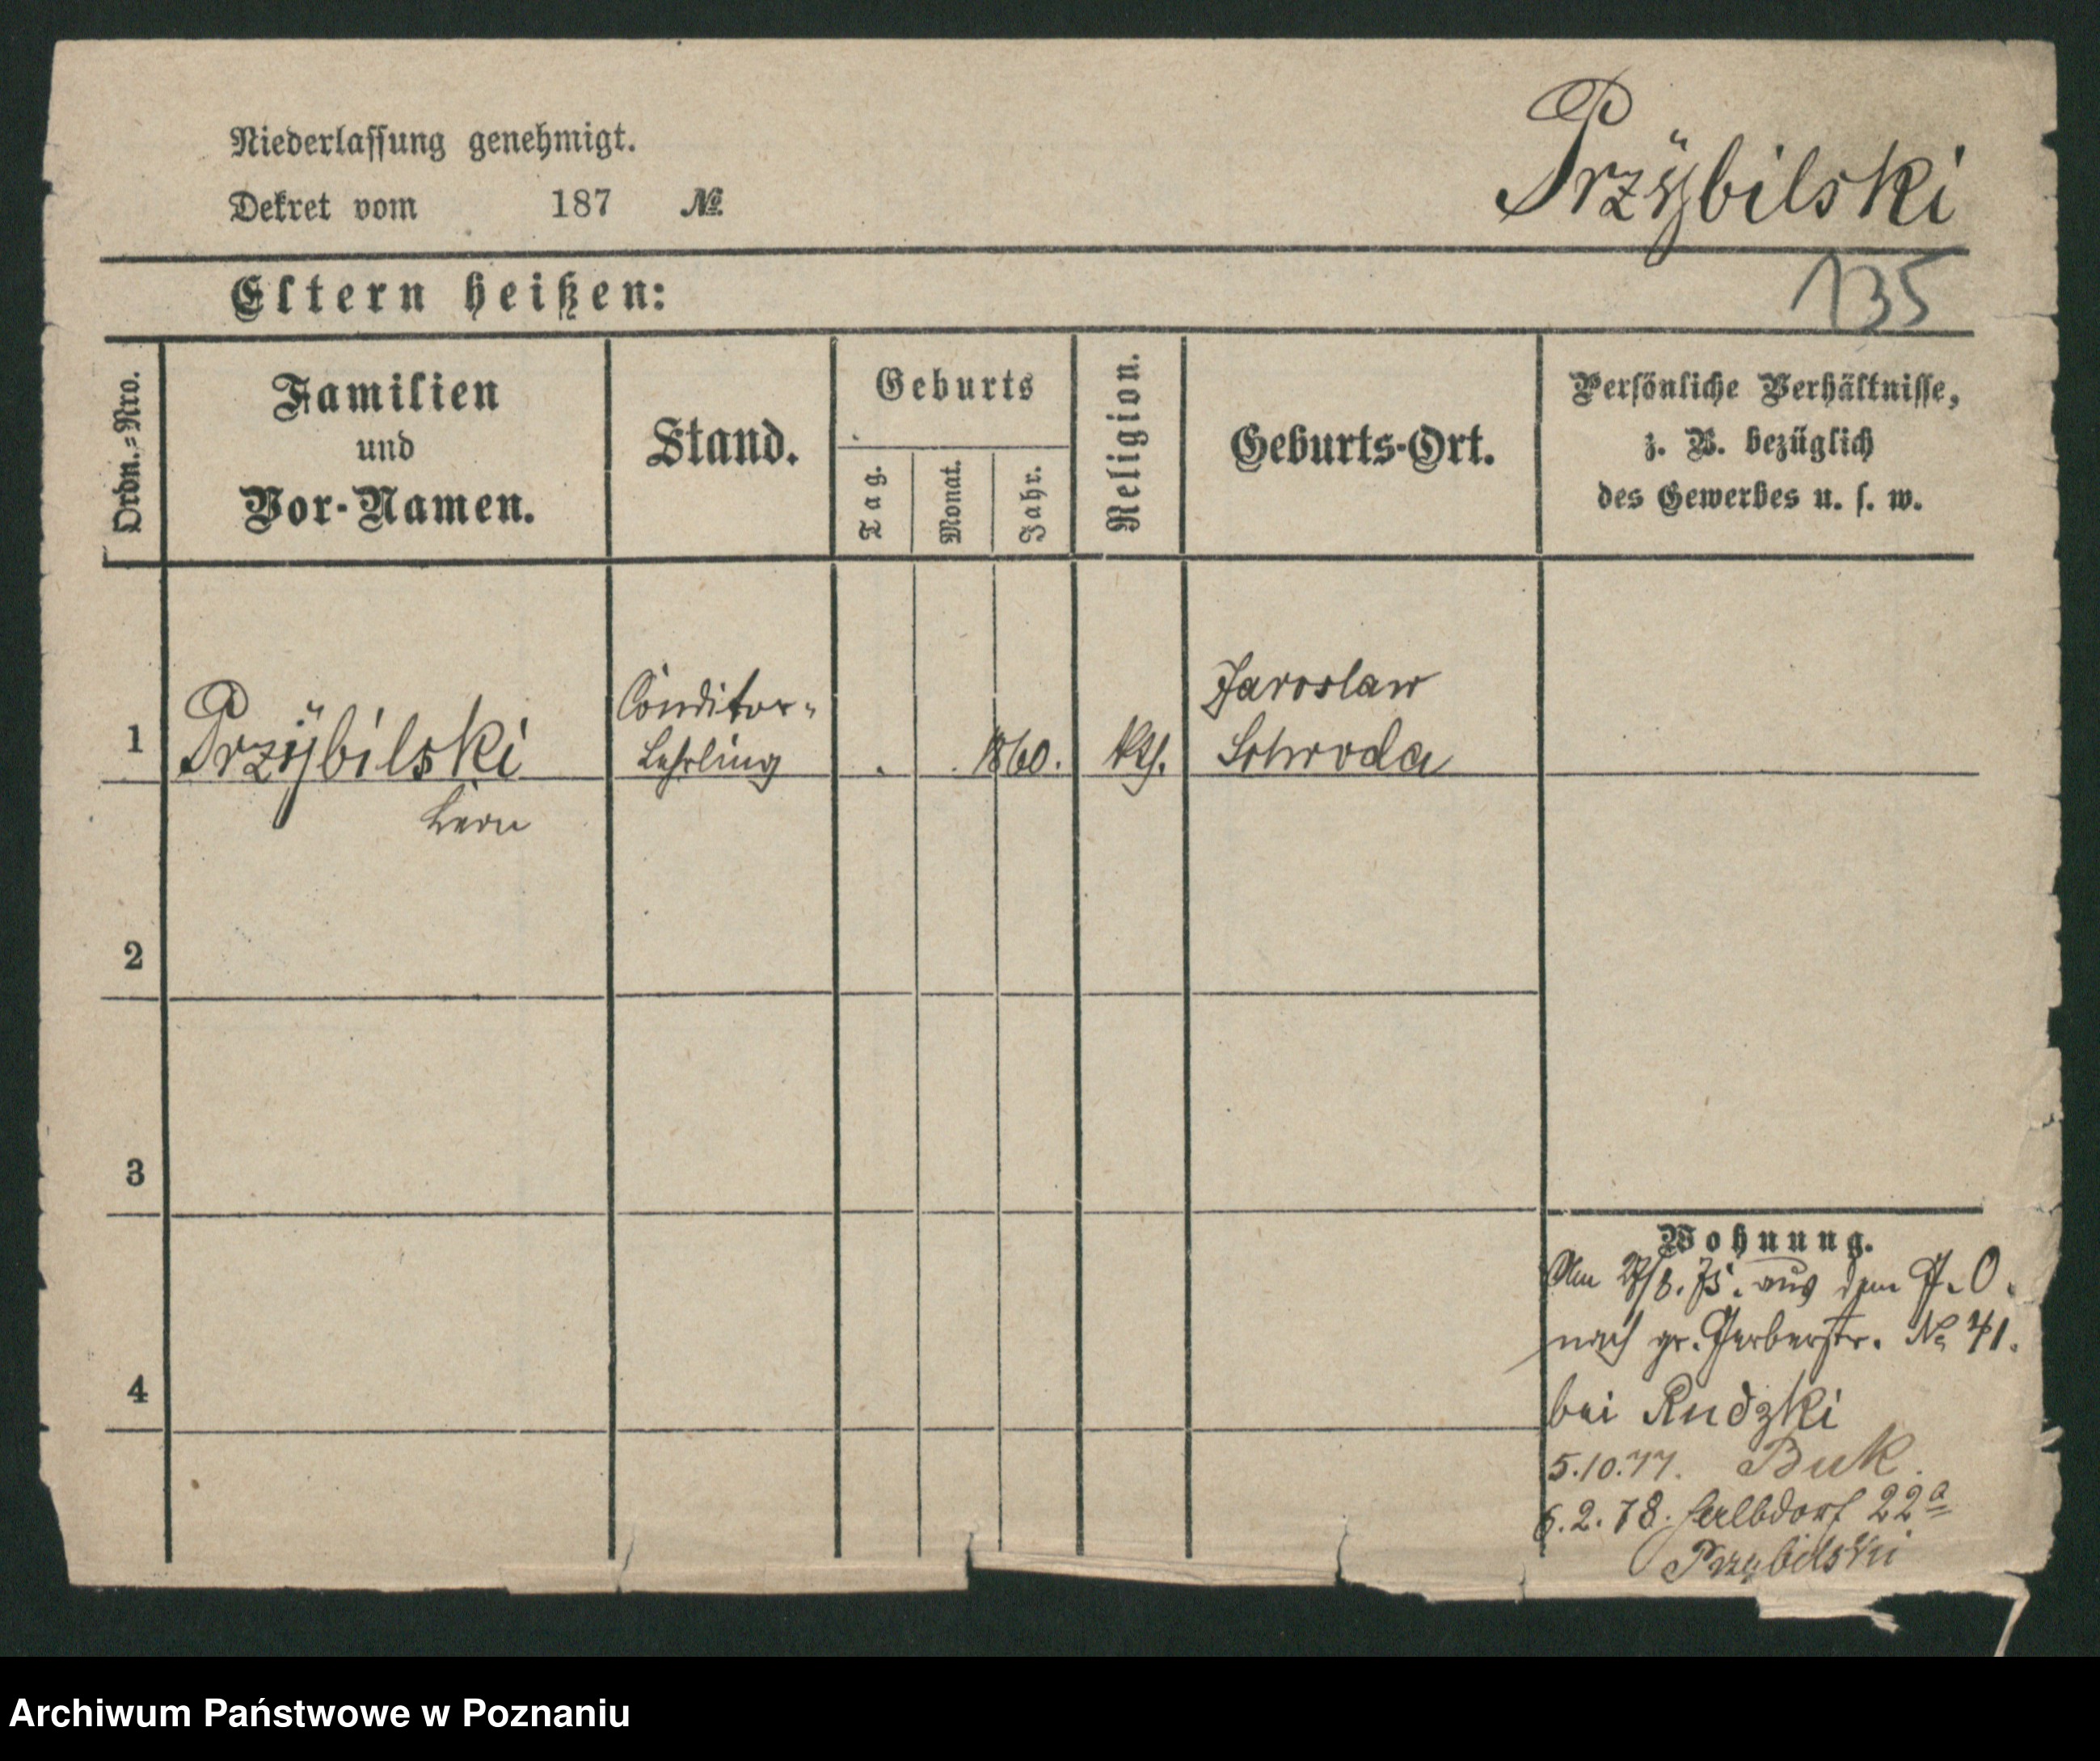 Niederlassung genehmigt.
Dekret vom 187 №
Przÿbilski
135
Eltern heißen:
Ordn.-Nro.
Familien
und
Vor-Namen.
Stand.
Geburts
Tag.
Monat.
Jahr.
Religion.
Geburts-Ort.
Persönliche Verhältnisse,
z. B. bezüglich
des Gewerbes u. s. w.
1
Przÿbilski
Leon
Conditor-
Lehrling
1860.
kth.
Jaroslaw
Schroda
2
3
4
Wohnung.
Am 27/8. 75. aus dem P. O.
nach gr. Gerberstr. No 41.
bei Rudzki
5.10.77. Buk.
6.2.78. 22a
Przybilski
Archiwum Państwowe w Poznaniu